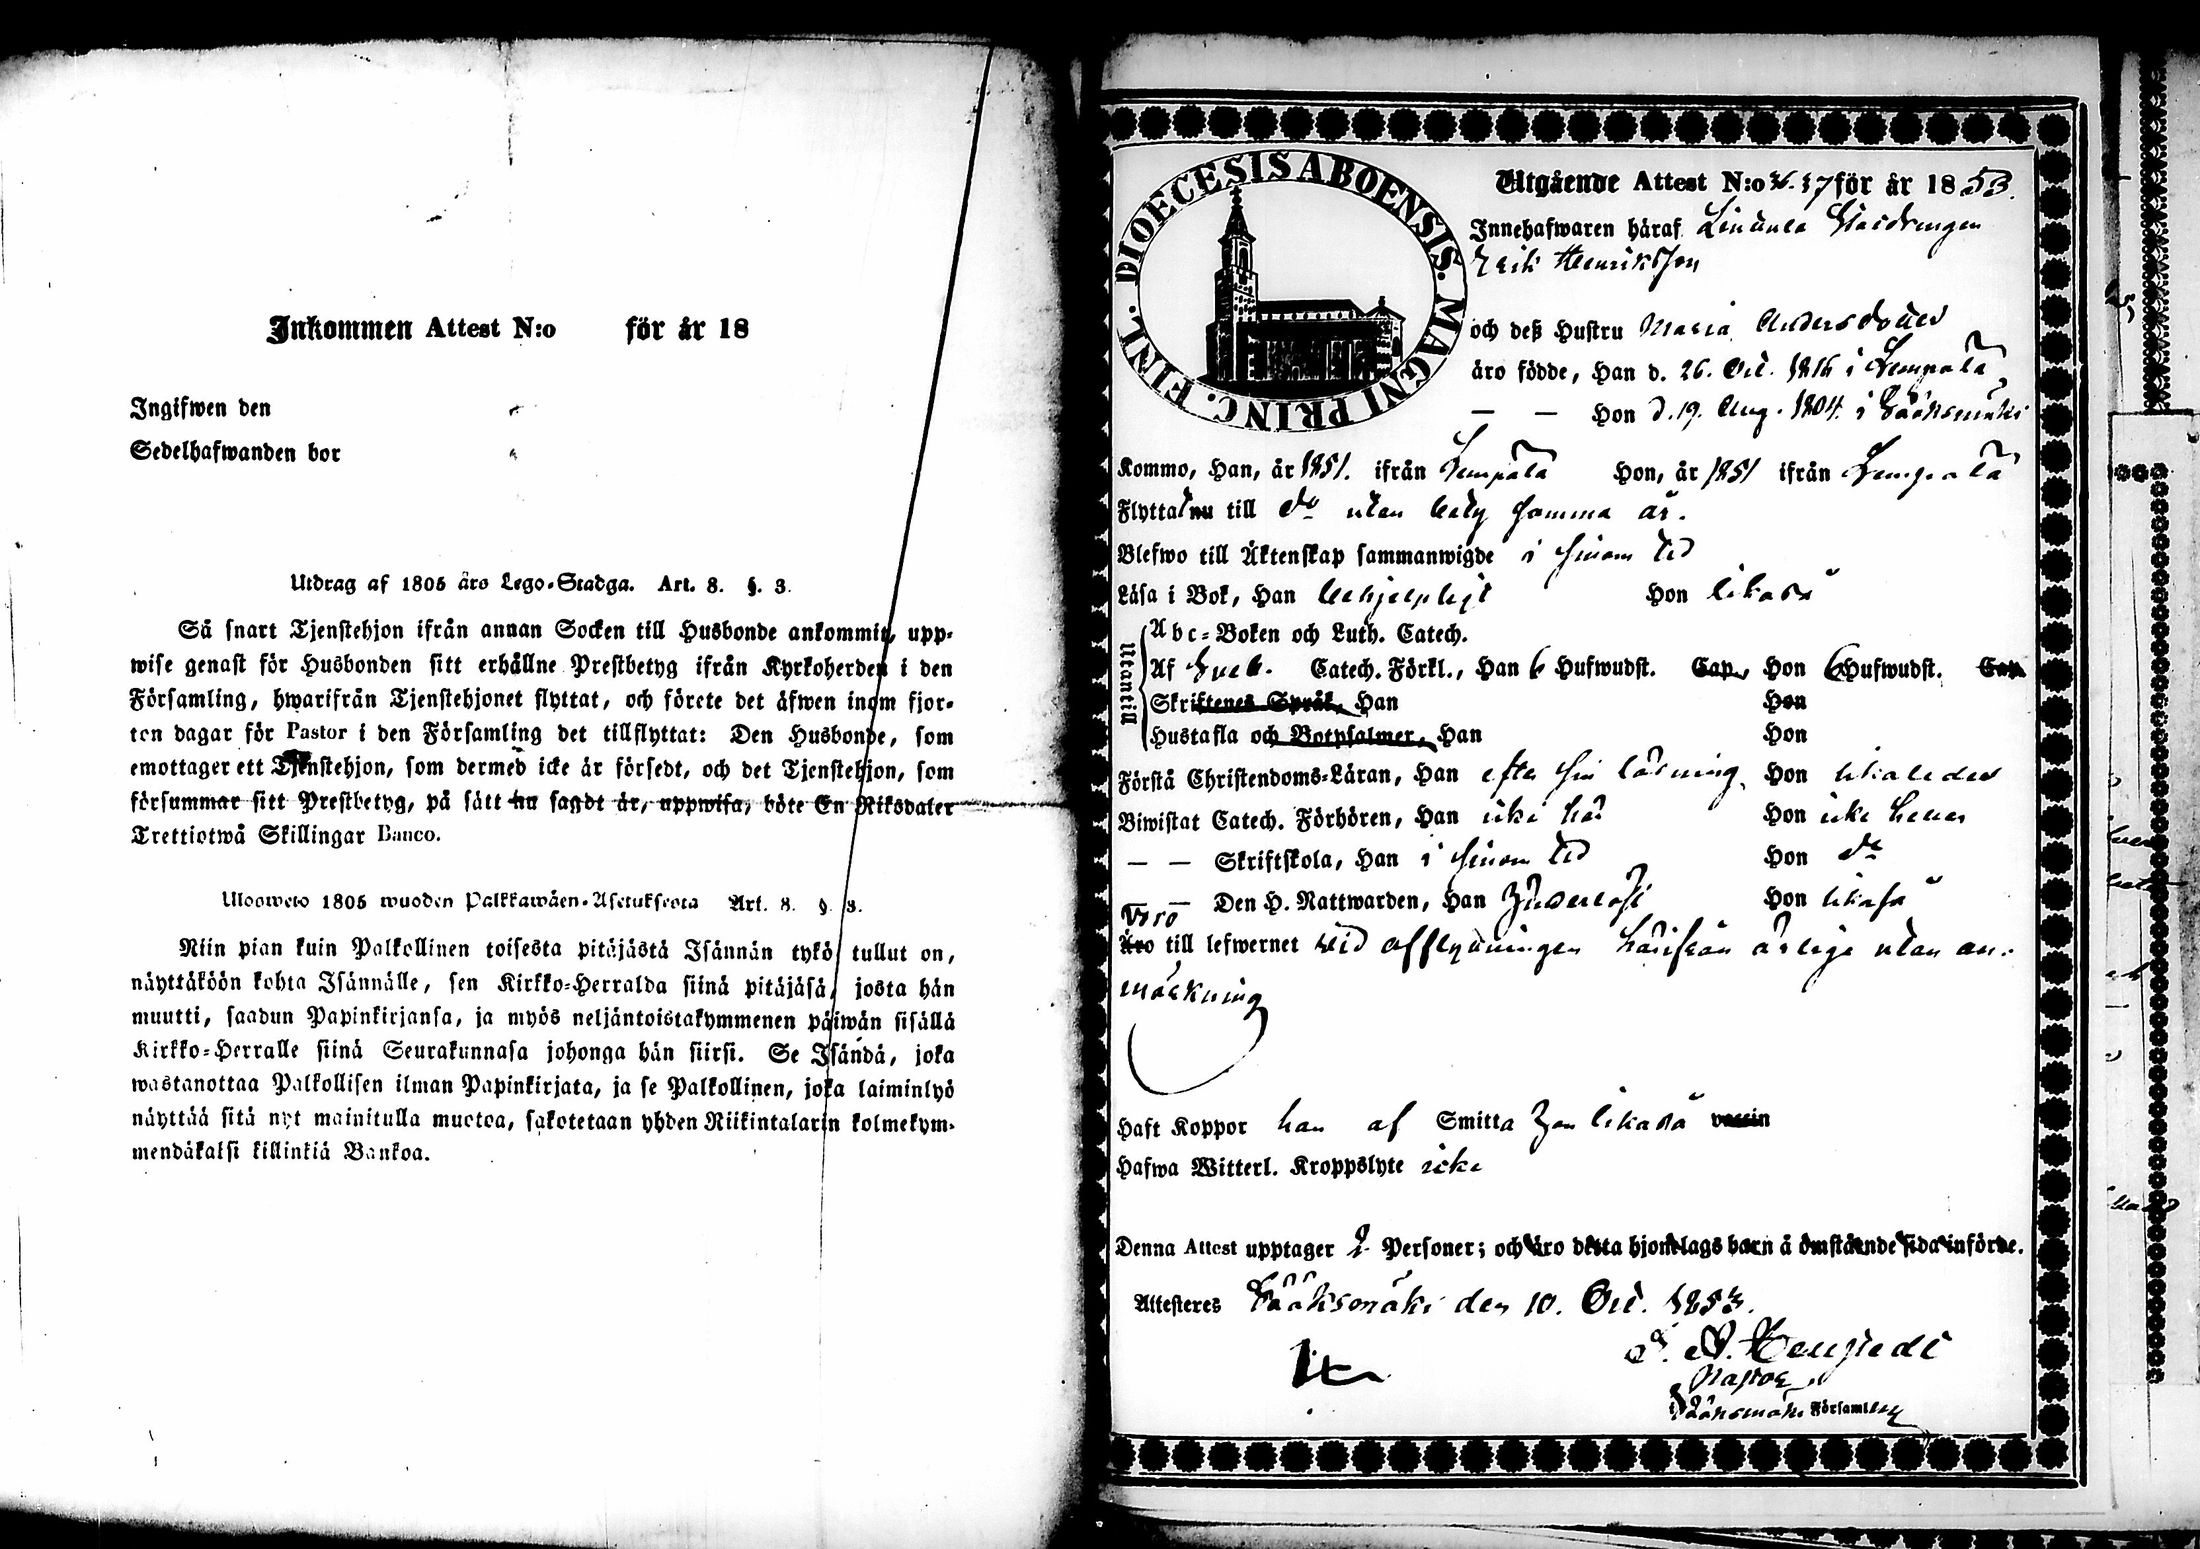 Inkommen Attest N:o för år 18
Ingifwen den
Sedelhafwanden bor
Utdrag af 1805 års Lego-Stadga. Art. 8. §. 3.
Så snart Tjenstehjon ifrån annan Socken till Husbonde ankommit, upp-
wise genast för Husbonden sitt erhållne Prestbetyg ifrån Kyrkoherden i den
Församling, hwarifrån Tjenstehjonet flyttat, och förete det äfwen inom fjor-
ton dagar för Pastor i den Församling det tillflyttat: Den Husbonde, som
emottager ett Tjenstehjon, som dermed icke är försedt, och det Tjenstehjon, som
försummar sitt Prestbetyg, på sätt nu sagdt är, uppwisa, böte En Riksdaler
Trettiotwå Skillingar Banco.
Ulosweto 1805 wuoden Palkkawäen-Asetuksesta Art. 8. §. 3.
Niin pian kuin Palkollinen toisesta pitäjästä Isännän tykö tullut on,
näyttäköön kohta Isännälle, sen Kirkko-Herralda siinä pitäjäsä, josta hän
muutti, saadun Papinkirjansa, ja myös neljäntoistakymmenen päiwän sisällä
Kirkko-Herralle siinä Seurakunnasa johonga hän siirsi. Se Isändä, joka
wastanottaa Palkollisen ilman Papinkirjata, ja se Palkollinen, joka laiminlyö
näyttää sitä nyt mainitulla muotoa, sakotetaan yhden Riikintalarin kolmekym-
mendäkaksi killinkiä Bankoa.
DIOECESIS ABOENSIS. MAGNI PRINC. FINL.
Utgående Attest N:o 36.37 för år 1853.
Innehafwaren häraf
Erik Henriksson
och deß Hustru Maria Andersdotter
äro födde, Han d. 26. Oct. 1816 i Lempälä
— — Hon d. 19. Aug. 1804 i Sääksmäki
Kommo, Han, år 1851. ifrån Lempälä Hon, år 1851 ifrån Lempälä
Flyttat nu till do utan betyg samma år.
Blefwo till Äktenskap sammanwigde i sinom tid
Läsa i Bok, Han behjelpligt Hon likaså
Utantill
Abc-Boken och Luth. Catech.
Af Sveb. Catech. Förkl., Han 6 Hufwudst. Cap., Hon 6 Hufwudst. Cap.
Skriftenes Språk, Han Hon
Hustafla och Botpsalmer, Han Hon
Förstå Christendoms-Läran, Han efter sin läsning Hon likaledes
Biwistat Catech. Förhören, Han icke här Hon icke heller
— — Skriftskola, Han i sinom tid Hon do
— — Den H. Nattwarden, Han Hon likaså
Woro
Äro till lefwernet wid afflyttningen härifrån ärlige utan an-
märkning
Haft Koppor han af Smitta hon likaså vaccin
Hafwa Witterl. Kroppslyte icke
Denna Attest upptager 2 Personer; och äro detta hjonelags barn å omstående sida införde.
Attesteres Sääksmäki den 10. Oct. 1853.
Pastor
i Sääksmäki Församling